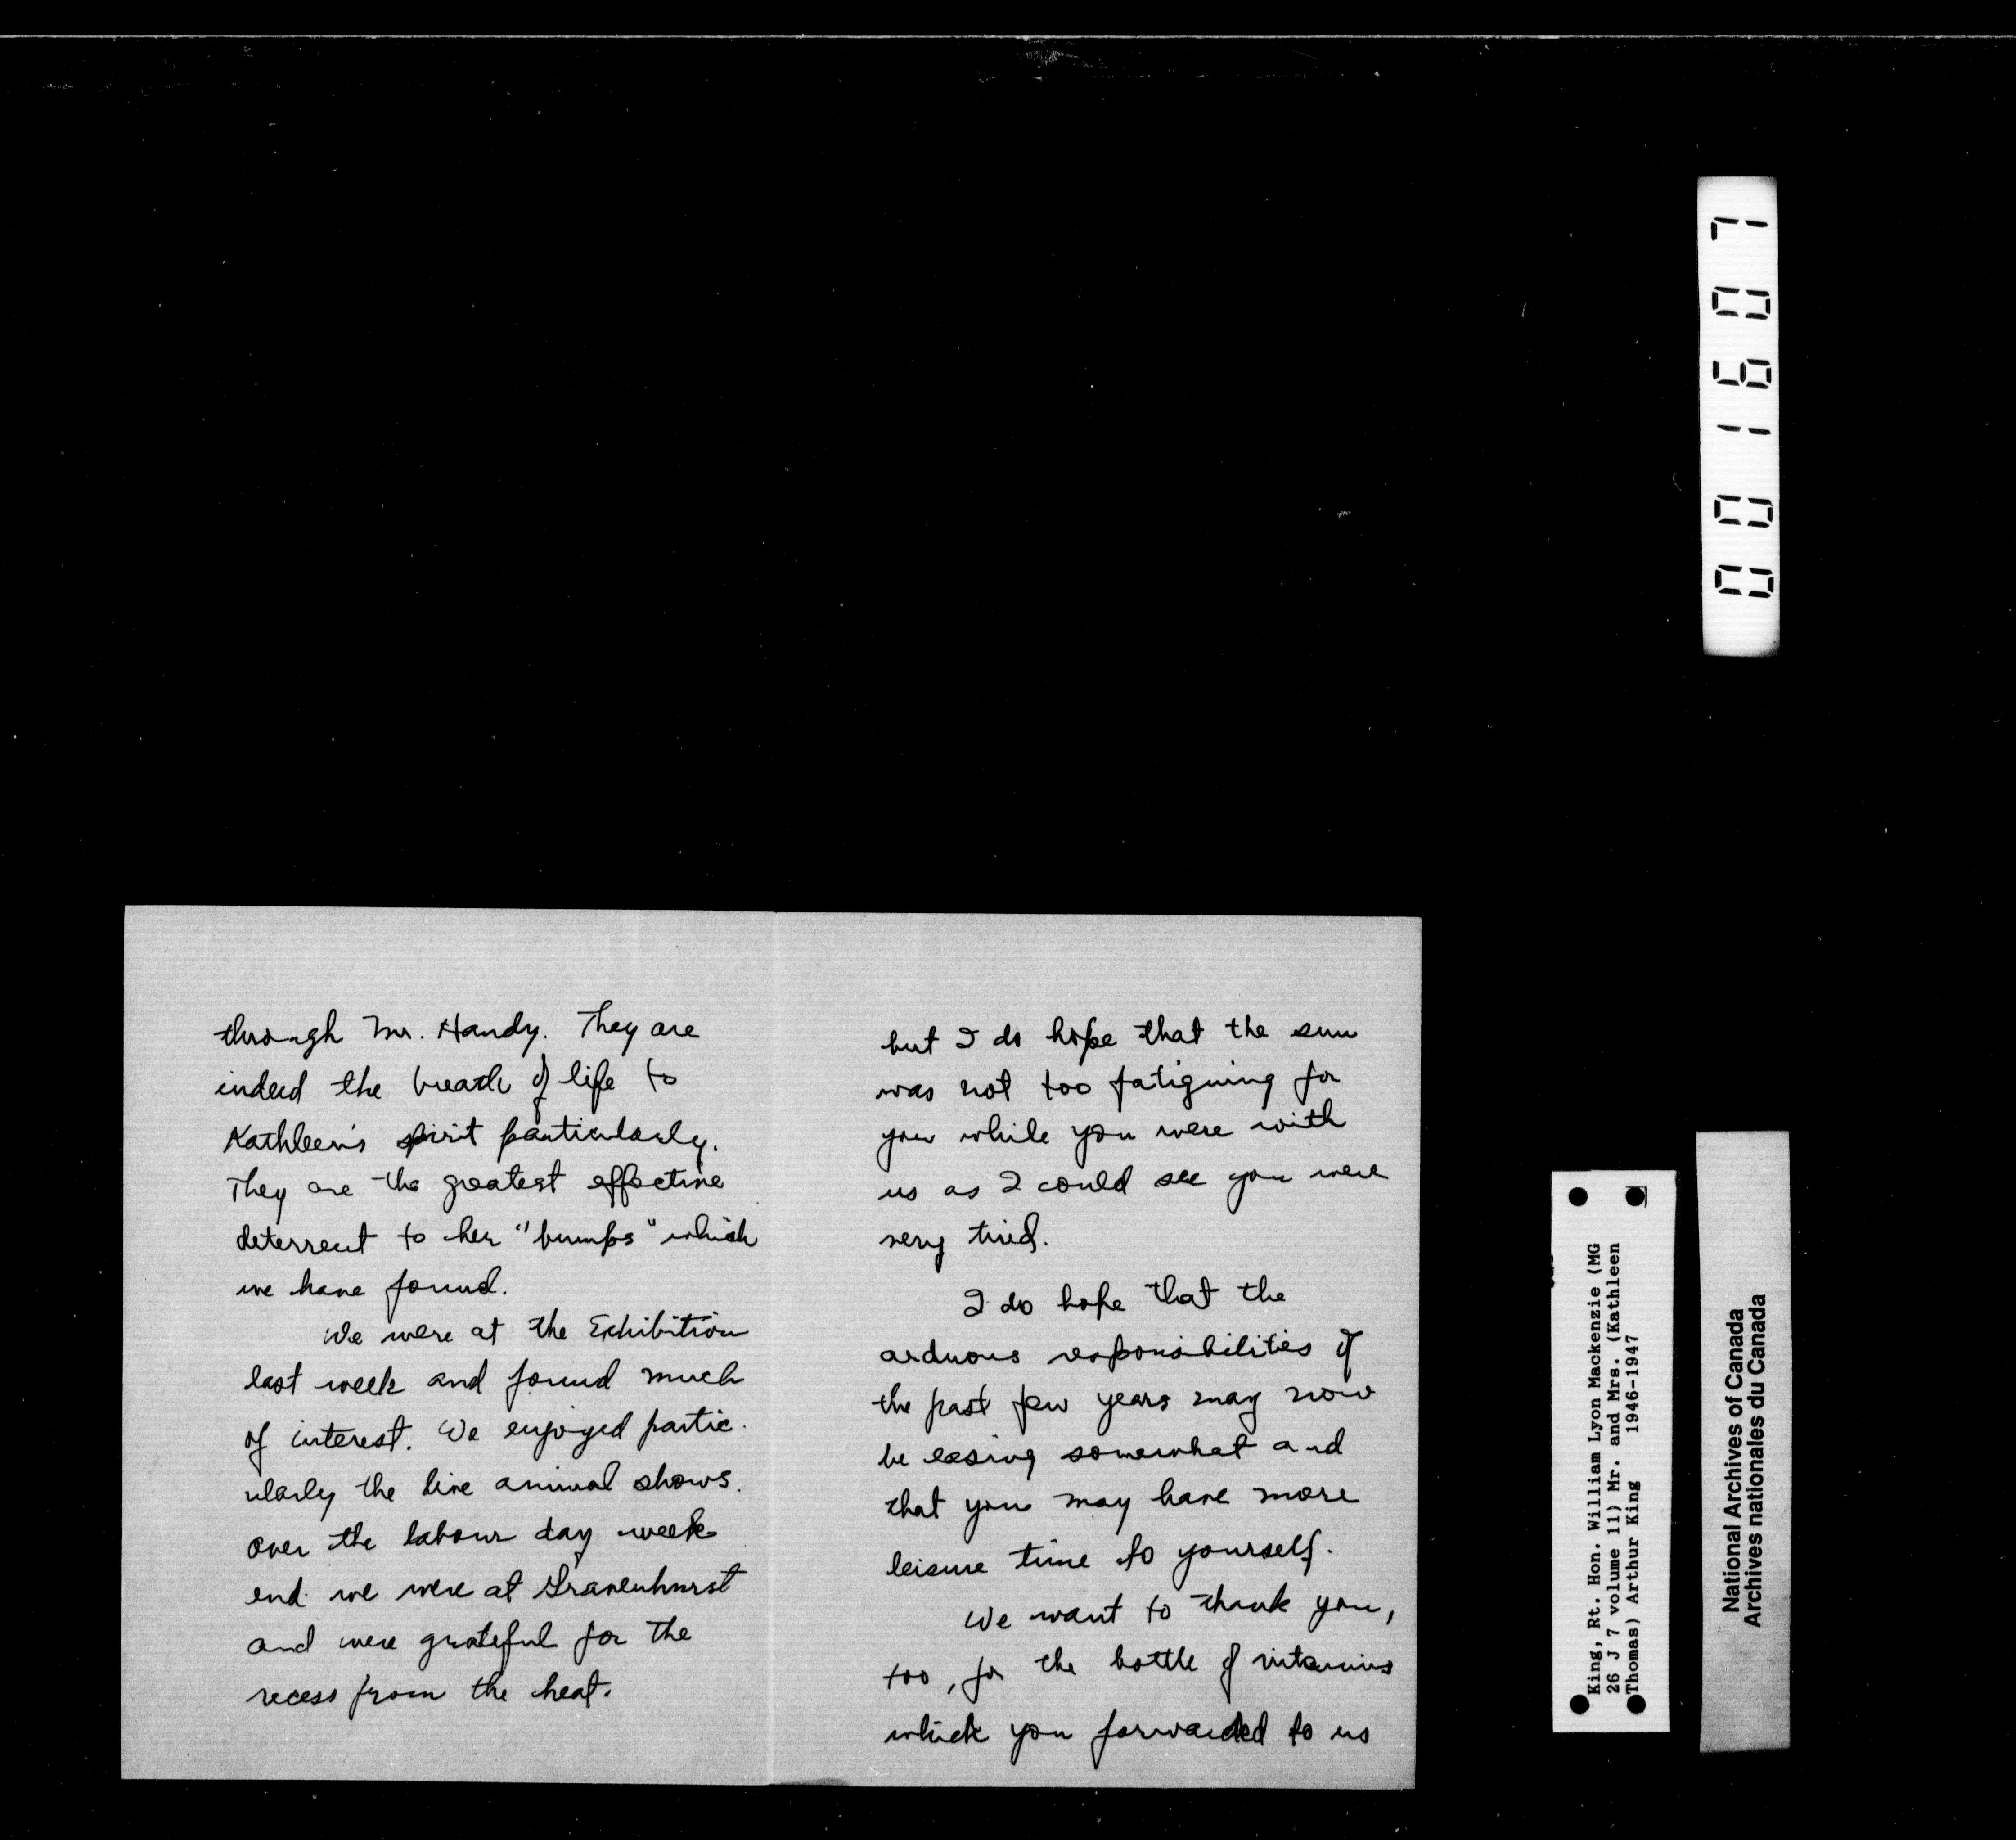 through Mr. Handy. They are
indeed the breath of life to
Kathleen's spirit particularly.
They are the greatest effective
deterrent to her "bumps" which
we have found.
We were at the Exhibition
last week and found much
of interest. We enjoyed partic-
ularly the live animal shows.
Over the labour day week
end we were at Gravenhurst
and were grateful for the
recess from the heat.
but I do hope that the sun
was not too fatiguing for
you while you were with
us as I could see you were
very tired.
I do hope that the
arduous responsibilities of
the past few years may now
be easing somewhat and
that you may have more
leisure time to yourself.
We want to thank you,
too, for the bottle of vitamins
which you forwarded to us
001607
King, Rt. Hon. William Lyon Mackenzie (MG
26 J 7 volume 11) Mr. and Mrs. (Kathleen
Thomas) Arthur King 1946-1947
National Archives of Canada
Archives nationales du Canada